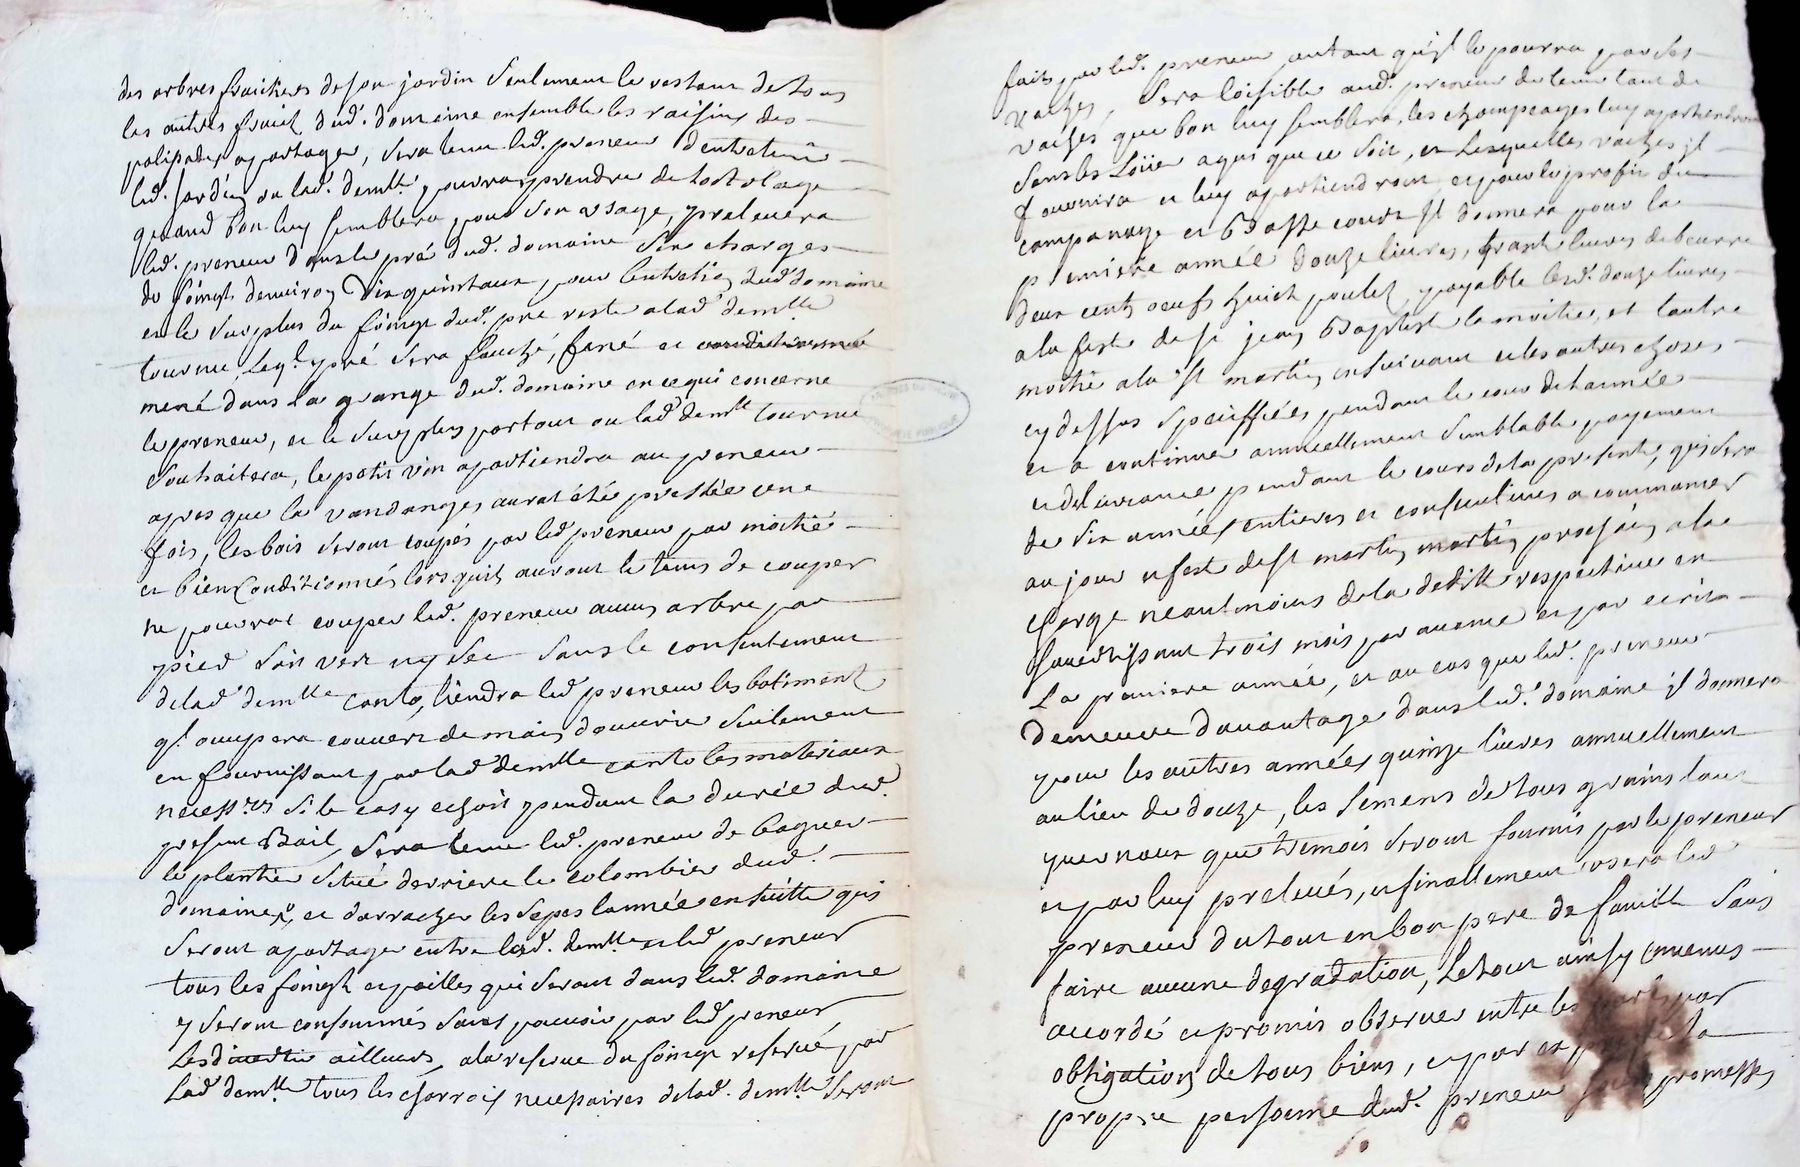 des arbres fruitiers de son jardin seulement le restant de tous
les autres fruit dud. domaine ensemble les raisins des
palissades a partager, sera tenu led. preneur d'entretenir
led. jardin ou lad. demlle pourra prendre de hortolage
quand bon luy semblera pour son usage, prelevera
led. preneur dans le pré dud. domaine six charges
de foingt denviron dix quintaux, pour lentretien dud domaine
et le surplus du foingt dud. pré reste a lad demlle
tournu, leql. pré sera fauché, fané et
mené dans la grange dud. domaine en ce qui concerne
le preneur, et le surplus partout ou lad demlle tournu
souhaitera, le petit vin apartiendra au preneur
apres que la vandanges aurat été pressée une
fois, les bois seront coupés par led preneur par moitié
et bien conditionnés lors quils auront le tems de couper
ne pourrat couper led. preneur aucun arbre par
pied soit vert ny sec sans le consentement
de lad demlle canto, tiendra led preneur les batiment
ql. occupera couvert de main douvrie seulement
en fournissant par lad demlle canto les materiaux
necessres si le cas y echoit pendant la durée dud.
present Bail, sera tenu led. preneur de
le plantier situé derriere le colombier dud.
domaine, et darracher les sepes lannée ensuitte qui
seront a partager entre lad. demlle et led preneur
tous les foingt et pailles qui seront dans led. domaine
y seront consommés sans pouvoir par led preneur
les divertir ailleurs, a la reserve du foingt reservé par
Lad demlle tous les charrois necessaires de lad. demlle seront
faits par led. preneur autant qu'il le pourra par ses
vaches, sera loisible aud. preneur de tenir tant de
vaches que bon luy semblera, les champeages luy apartiendront
sans les loüer a qui que ce soit, et lesquelles vaches il
fournira et luy apartiendront, et pour le profit du
companage et Basse cour il donnera pour la
premiere année douze livres, trante livres de beurre
deux cents oeufs huit poulet payable lesd. douze livres
a la fest de st jean Baptist la moitie, et lautre
moitié a la st martin ensuivant et les autres choses
cy dessus speciffiées pendant le cour de lannée
et a continuer annuellement semblable payement
et delivrance pendant le cours de la presente, qui sera
de six années entieres et consecutives a commancer
au jour et fest de st martin martin prochain, a la
charge neantmoins de la deditte respective en
savertissant trois mois par avance et par ecrit
La premiere année, et au cas que led. preneur
demeure davantage dans led. domaine il donnera
pour les autres années quinze livres annuellement
au lieu de douze, les semens de tous grains tant
yvernaux que tremois seront fournis par le preneur
et par luy prelevés, et finallement usera led
preneur du tout en bon pere de famille sans
faire aucune degradation, Le tout ainsy convenus
accordé et promis observer entre les par
obligation de tous biens, et par ex la
propre personne dud. preneur promesses